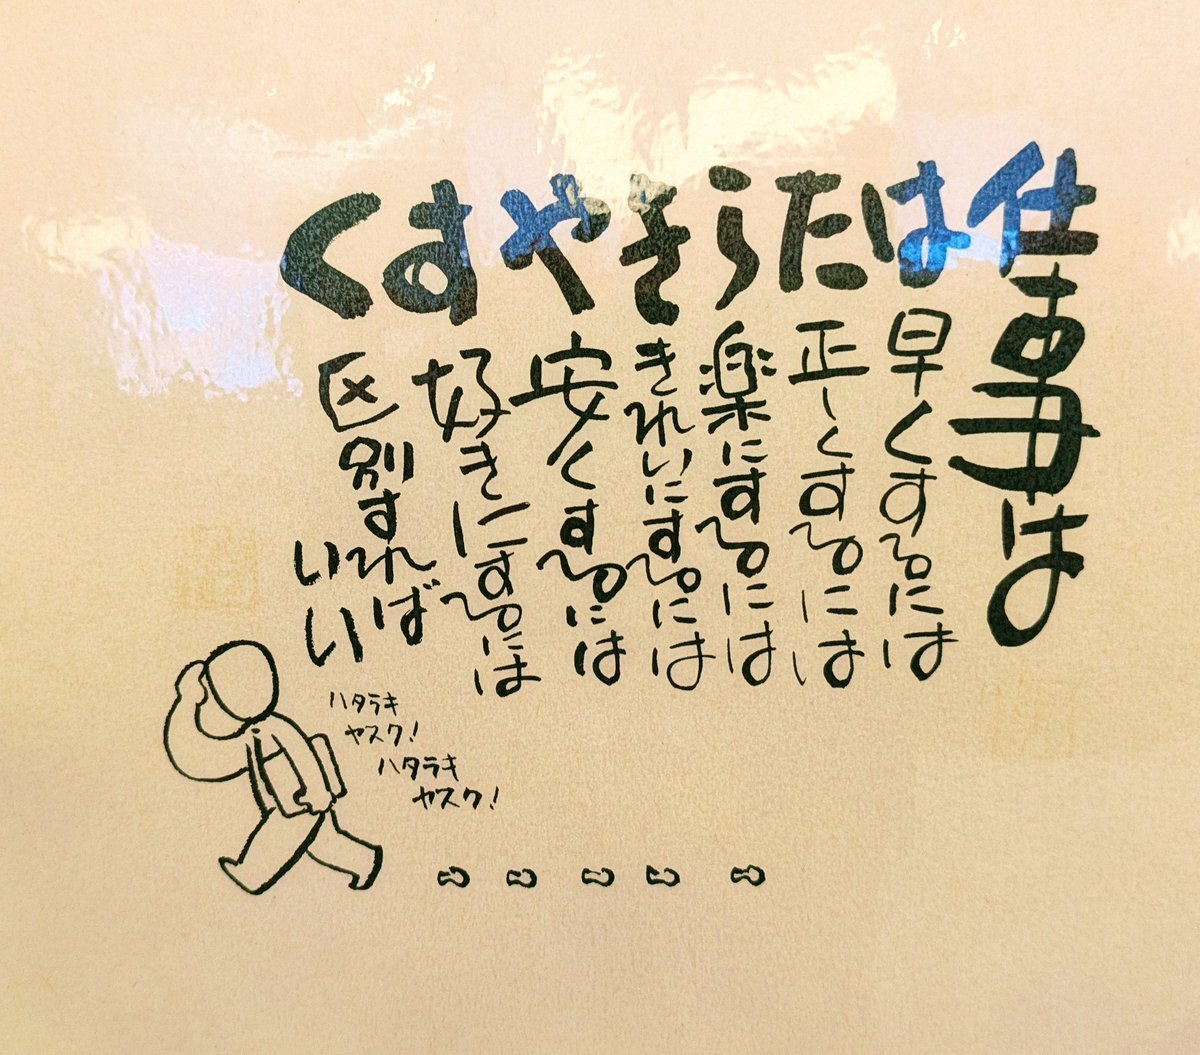 仕事は
はたらきやすく
早くするには
正しくするには
楽にするには
きれいにするには
安くするには
好きにするには
区別すれば
いい
ハタラキ
ヤスク!
ハタラキ
ヤスク!